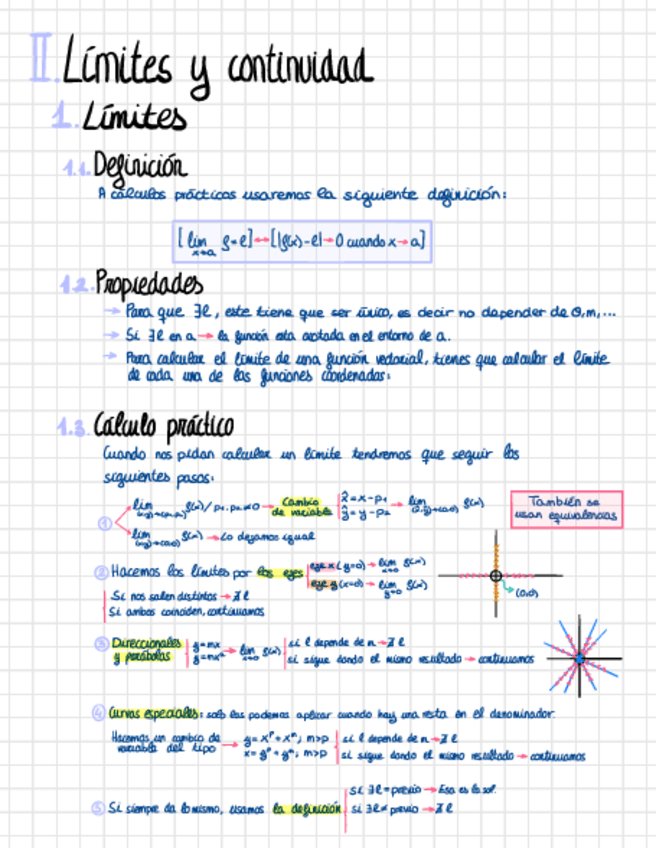 II. Límites y continuidad
1. Límites
1.1. Definición
A cálculos prácticos usaremos la siguiente definición:
[lim x→a f = l] ↔ [|f(x)-l| → 0 cuando x → a]
1.2. Propiedades
→ Para que ∃l, este tiene que ser único, es decir no depender de θ, m, ...
→ Si ∃l en a → la función esta acotada en el entorno de a.
→ Para calcular el límite de una función vectorial, tienes que calcular el límite
de cada una de las funciones coordenadas:
1.3. Cálculo práctico
Cuando nos pidan calcular un límite tendremos que seguir los
siguientes pasos:
① lim (x,y)→(p₁,p₂) f(x) / p₁, p₂ ≠ 0 → Cambio de variable | x̂ = x - p₁ ŷ = y - p₂ → lim (x̂,ŷ)→(0,0) f(x)
También se
usan equivalencias
lim (x,y)→(0,0) f(x) → Lo dejamos igual
② Hacemos los límites por los ejes | eje x (y=0) → lim x→0 f(x)
eje y (x=0) → lim y→0 f(x)
(0,0)
Si nos salen distintos → ∄ l
Si ambos coinciden, continuamos
③ Direccionales y parábolas | y = mx y = mxⁿ → lim x→0 f(x) | si l depende de m → ∄ l
si sigue dando el mismo resultado → continuamos
④ Curvas especiales: solo las podemos aplicar cuando hay una resta en el denominador.
Hacemos un cambio de variable del tipo → y = xᵖ + xᵐ; m>p x = yᵖ + yᵐ; m>p | si l depende de m → ∄ l
si sigue dando el mismo resultado → continuamos
⑤ Si siempre da lo mismo, usamos la definición | si ∃l = previo → Esa es la sol.
si ∃l ≠ previo → ∄ l